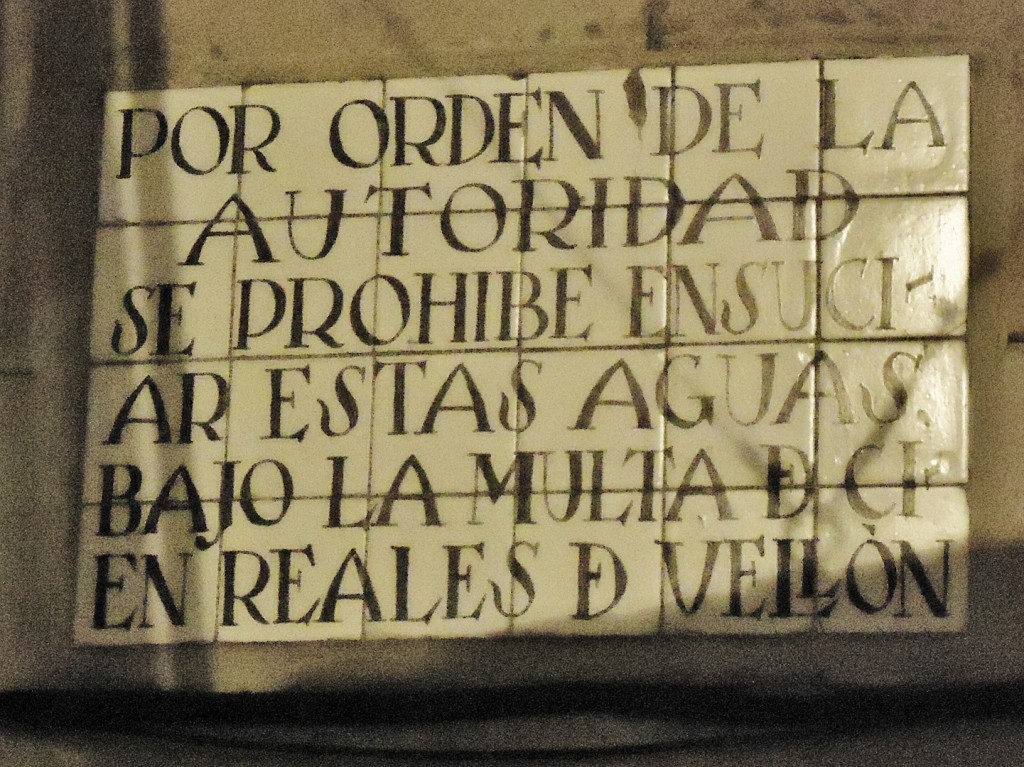 POR ORDEN DE LA
AUTORIDAD
SE PROHIBE ENSUCI-
AR ESTAS AGUAS,
BAJO LA MULTA Đ CI-
EN REALES Đ VELLÒN